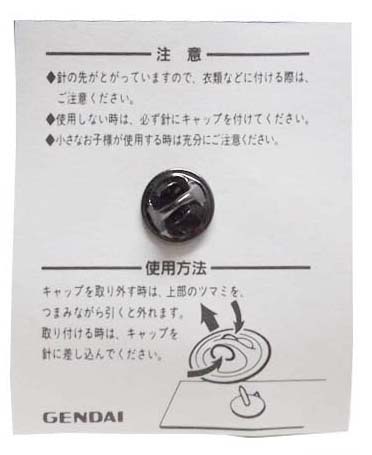 注意
◆針の先がとがっていますので、衣類などに付ける際は、
ご注意ください。
◆使用しない時は、必ず針にキャップを付けてください。
◆小さなお子様が使用する時は充分にご注意ください。
使用方法
キャップを取り外す時は、上部のツマミを、
つまみながら引くと外れます。
取り付ける時は、キャップを
針に差し込んでください。
GENDAI